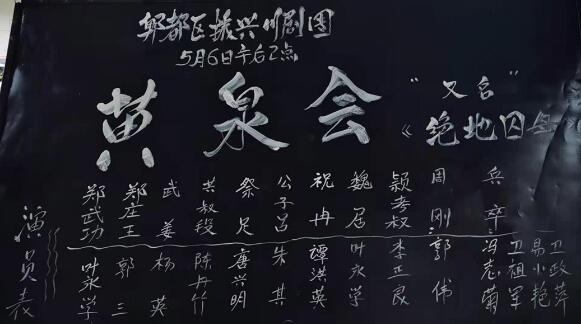 郫都区振兴川剧团
5月6日午后2点
黄泉会
"又名"
《绝地囚母
演员表
郑武功 郑庄王 武姜 共叔段 祭足 公子吕 祝冉 魏居 颍考叔 周刚 兵卒
叶永学 郭三 杨英 陈丹竹 唐兴明 朱其 谭洪英 叶永学 李正良 郭伟 冯志菊 卫祖军 易小艳 卫政萍